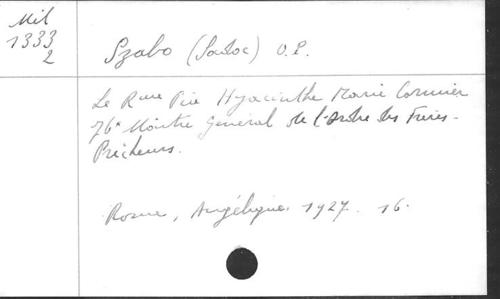 Mil
1333
2
Szabo (Sadoc) O.P.
Le Rme Père Hyacinthe Marie Cormier
76e Maître Général de l'Ordre des Frères-
Prêcheurs.
Rome, Angélique. 1927. 16.